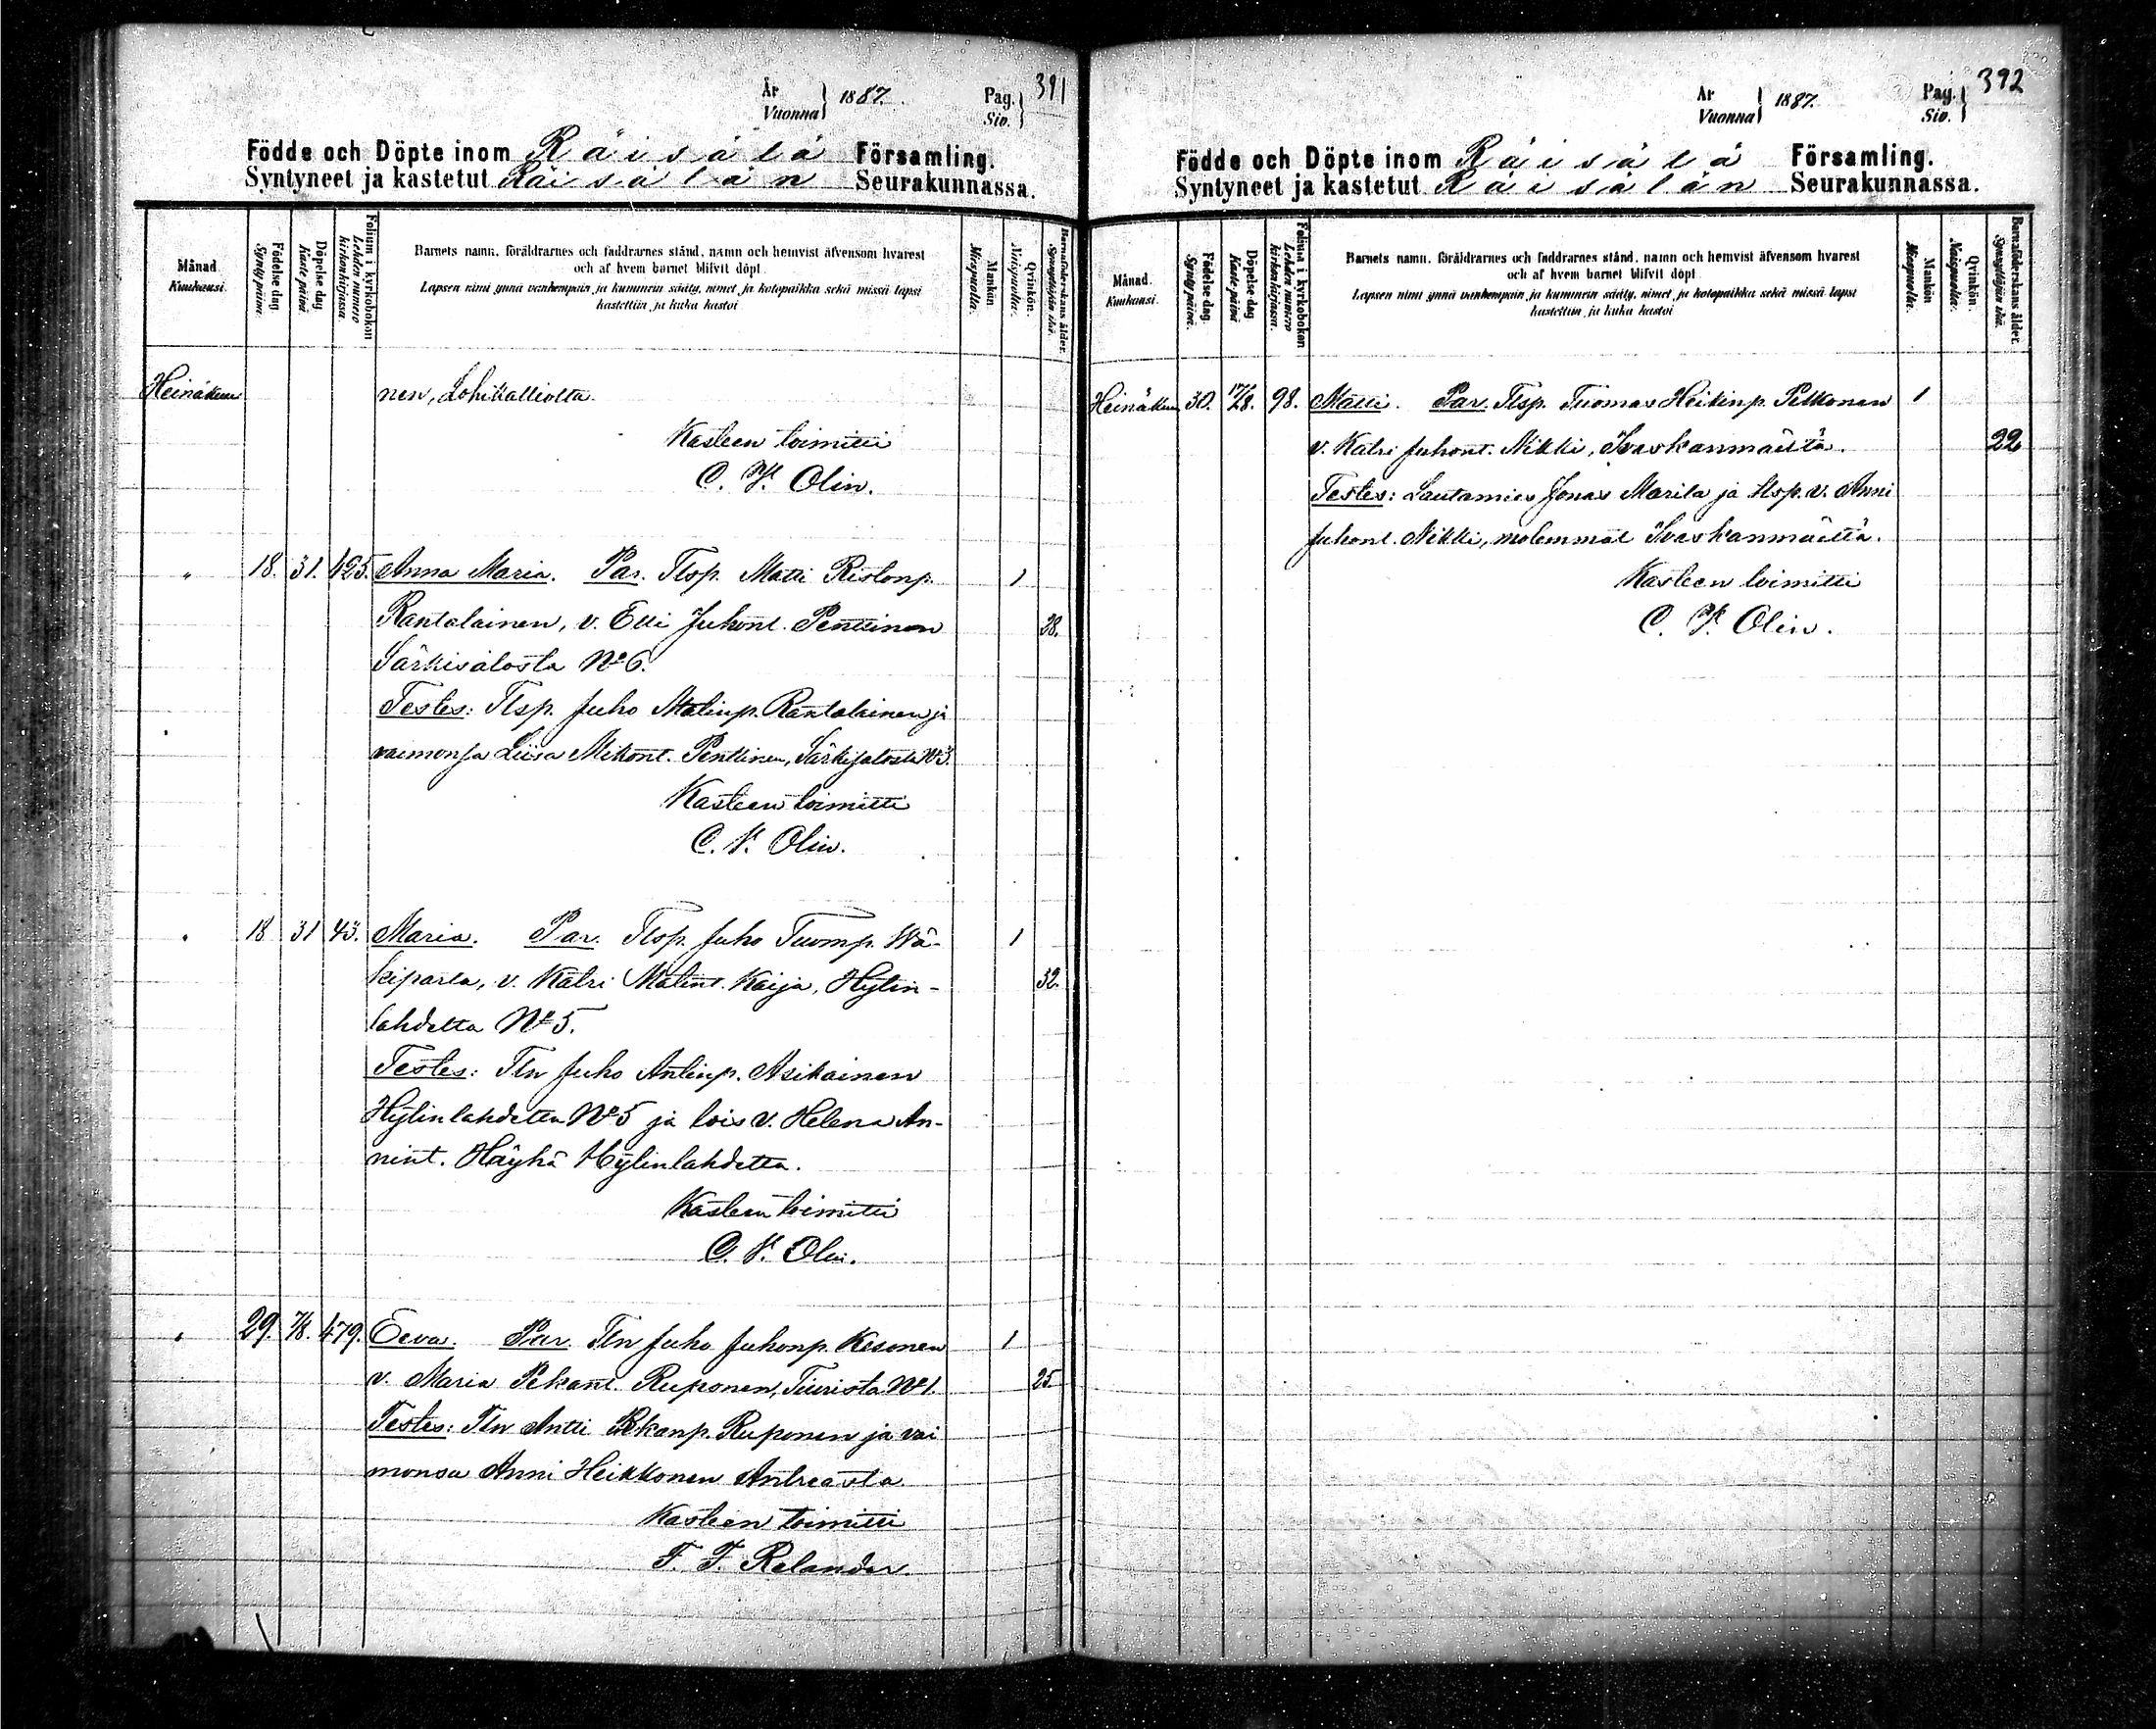 År
Vuonna } 1887.
Pag.
Siv. } 391
Födde och Döpte inom Räisälä Församling.
Syntyneet ja kastetut Räisälän Seurakunnassa.
Månad.
Kuukausi.
Födelse dag.
Synty päivä.
Döpelse dag.
Kaste päivä.
Folium i kyrkoboken
Lehden numero kirkonkirjassa.
Barnets namn, föräldrarnes och faddrarnes stånd, namn och hemvist äfvensom hvarest
och af hvem barnet blifvit döpt.
Lapsen nimi ynnä vanhempain ja kummein sääty, nimet ja kotopaikka sekä missä lapsi
kastettiin ja kuka kastoi
Mankön.
Miespuolta.
Qvinkön.
Naispuolta.
Barnaföderskans ålder.
Synnyttäjän ikä.
Heinäkuu nen, Lohikalliolta.
Kasteen toimitti
C. F. Olin.
" 18. 31. 425. Anna Maria. Par. Tlsp. Matti Ristonp. 1
Rantalainen, v. Elli Juhont. Penttinen 28.
Särkisalosta No 6.
Testes: Tlsp. Juho Matinp. Rantalainen ja
vaimonsa Liisa Mikont. Penttinen, Särkisalosta No 3.
Kasteen toimitti
C. F. Olin.
" 18 31 43. Maria. Par. Tlsp. Juho Tuomp. Wä- 1
kiparta, v. Katri Matint. Kaija, Hytin- 32.
lahdelta No 5.
Testes: Tln Juho Antinp. Asikainen
Hytinlahdelta No 5 ja lois v. Helena An-
nint. Häyhä Hytinlahdelta.
Kasteen toimitti
C. F. Olin.
" 29. 7/8. 479. Eeva. Par. Tln Juho Juhonp. Kesonen 1
v. Maria Pekant. Ruponen, Tiurista No 1. 25.
Testes: Tln Antti Pekanp. Ruponen ja vai
monsa Anni Heikkonen Antreasta.
Kasteen toimitti
F. F. Relander.
År
Vuonna } 1887.
Pag.
Siv. } 392
Födde och Döpte inom Räisälä Församling.
Syntyneet ja kastetut Räisälän Seurakunnassa.
Månad.
Kuukausi.
Födelse dag.
Synty päivä.
Döpelse dag.
Kaste päivä
Folium i kyrkoboken
Lehden numero kirkonkirjassa.
Barnets namn, föräldrarnes och faddrarnes stånd, namn och hemvist äfvensom hvarest
och af hvem barnet blifvit döpt
Lapsen nimi ynnä vanhempain ja kummein sääty, nimet ja kotopaikka sekä missä lapsi
kastettiin ja kuka kastoi
Mankön
Miespuolta.
Qvinkön.
Naispuolta.
Barnaföderskans ålder.
Synnyttäjän ikä.
Heinäkuu 30. 98. Matti. Par. Tlsp. Tuomas Heikinp. Pelkonen 1
v. Katri Juhont. Nikki, Ivaskanmäeltä. 22
Testes: Lautamies Jonas Marila ja tlsp. v. Anni
Juhont. Nikki, molemmat Ivaskanmäeltä.
Kasteen toimitti
C. F. Olin.